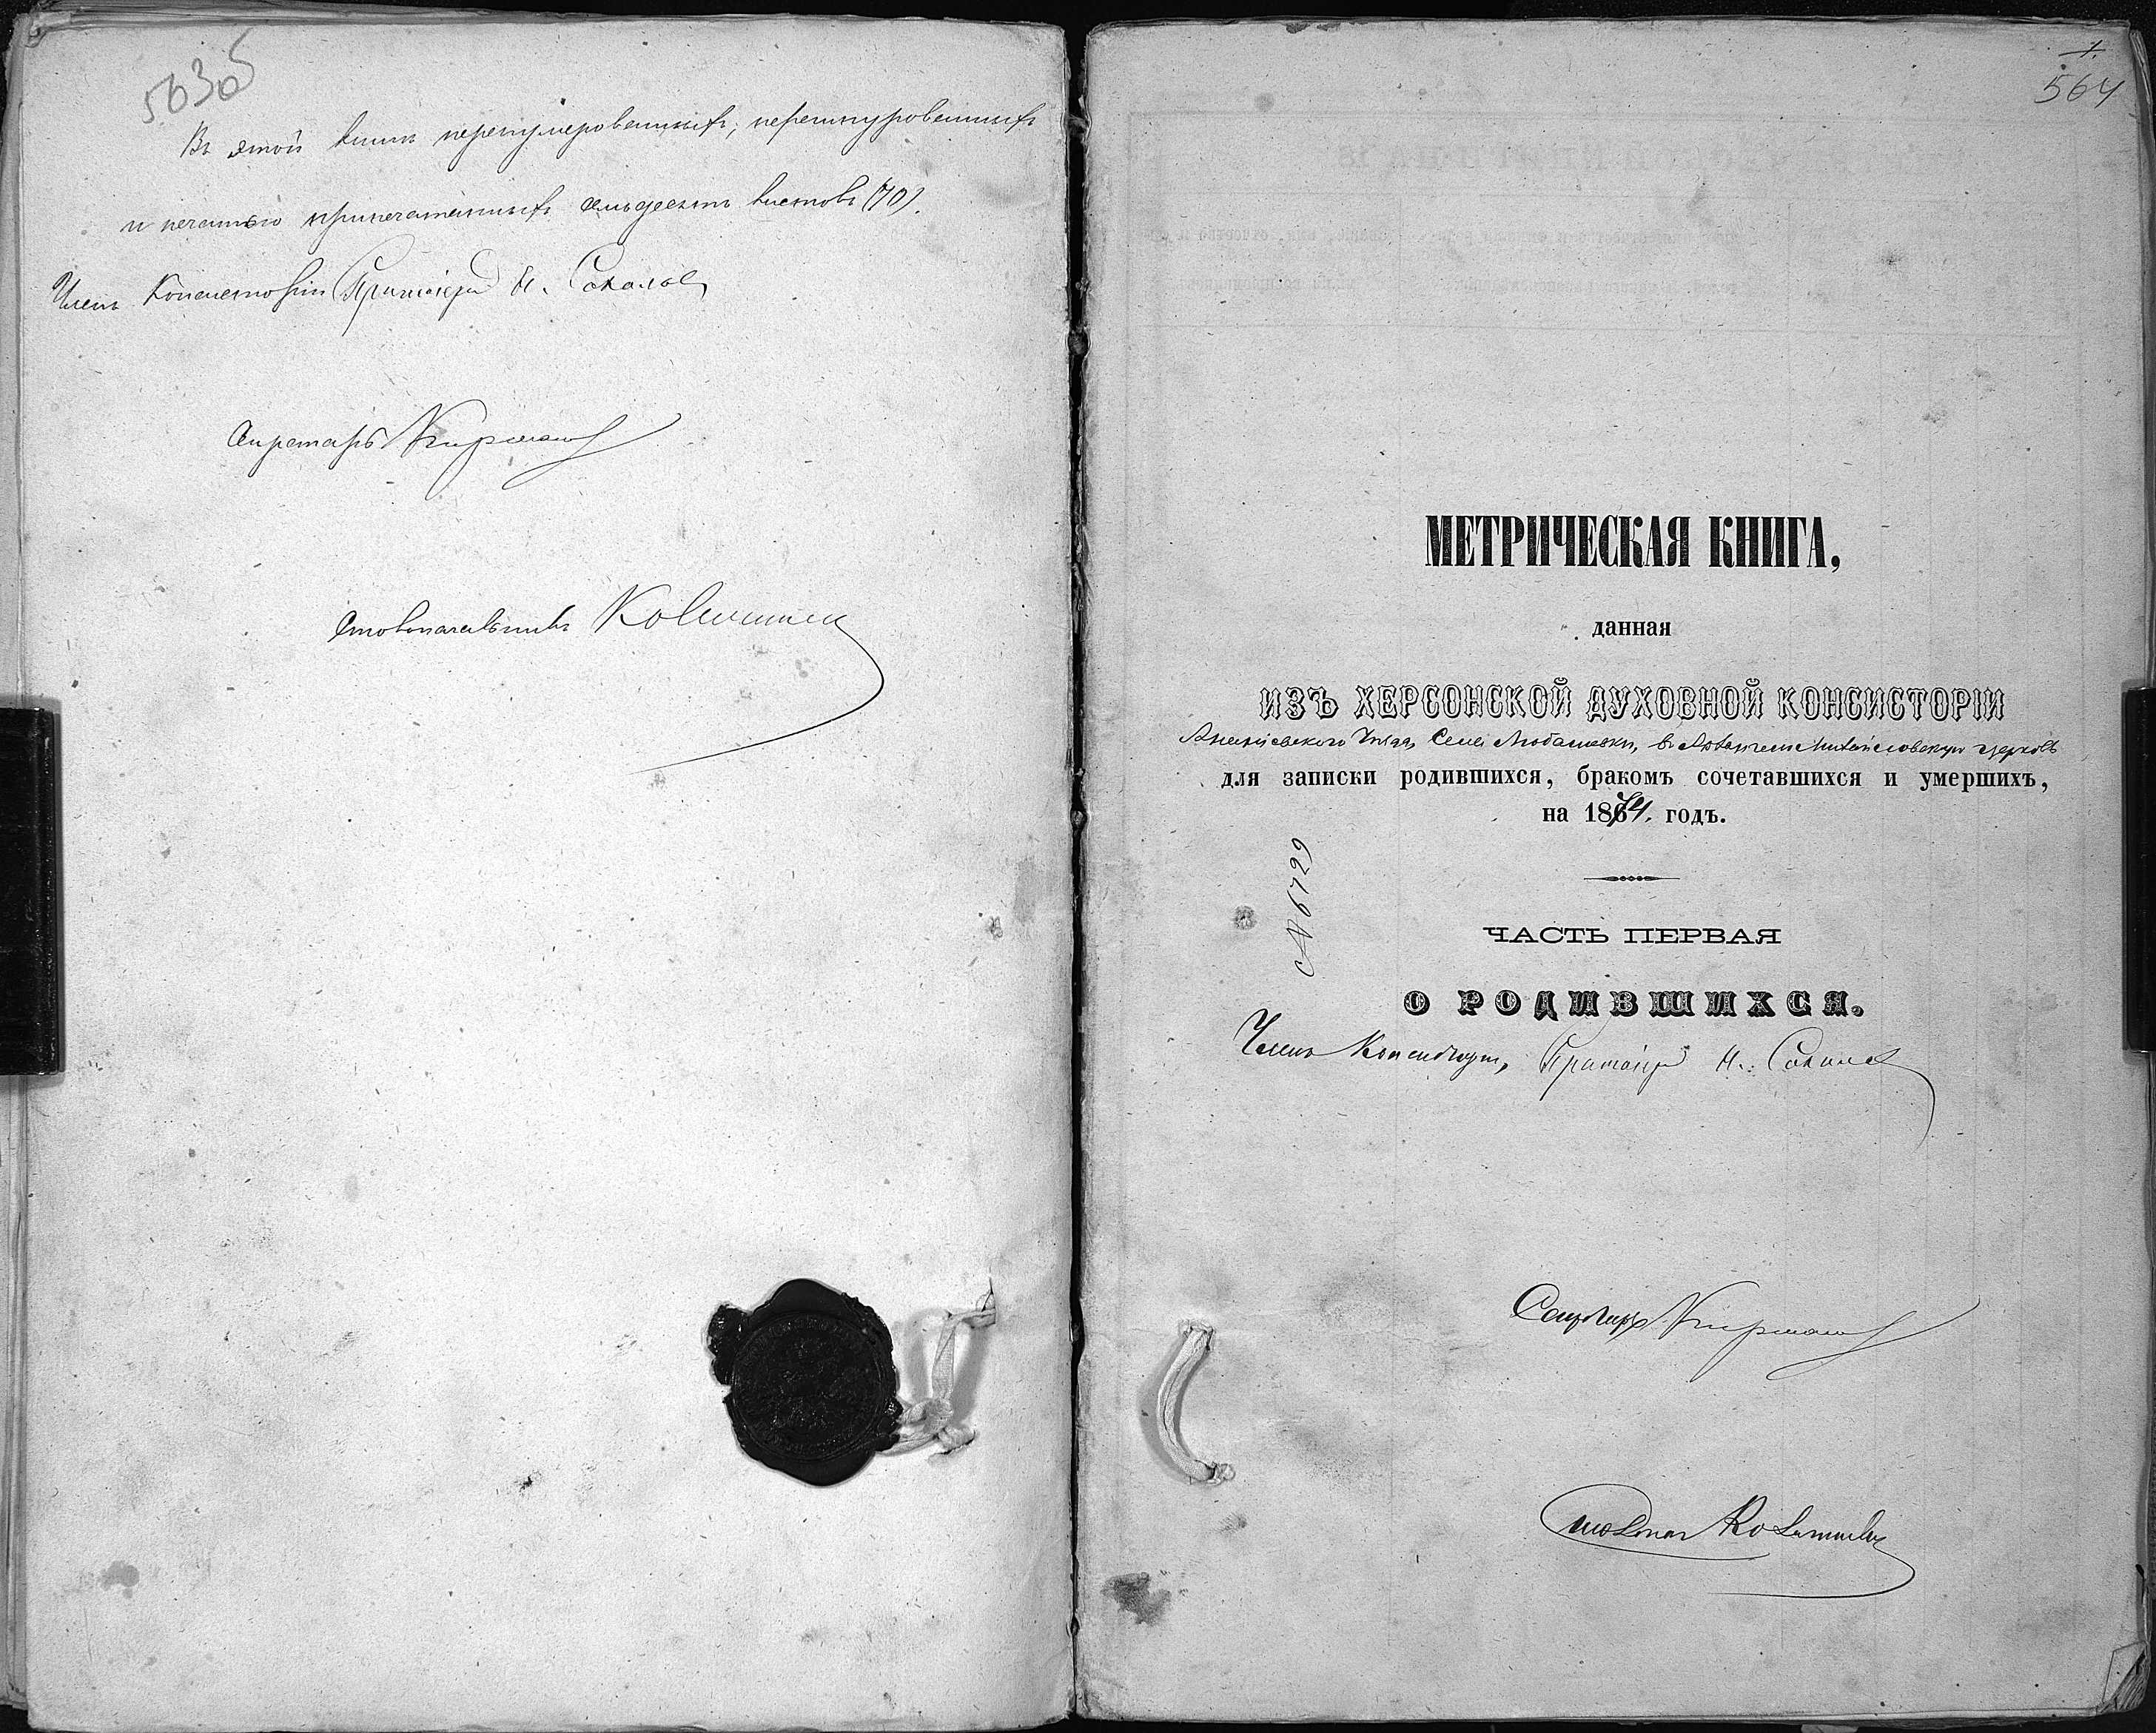 563об
Въ этой книгѣ перенумерованныхъ, перешнурованныхъ
и печатью припечатанныхъ семьдесятъ листовъ (70).
Членъ Консисторіи Протоіерей Н. Соколов
Секретарь
Столоначальникъ
1.
564
МЕТРИЧЕСКАЯ КНИГА,
данная
ИЗЪ ХЕРСОНСКОЙ ДУХОВНОЙ КОНСИСТОРІИ
Ананіевского Уѣзда, Села Любашевки, въ Архангело Михайловскую церковь
для записки родившихся, бракомъ сочетавшихся и умершихъ,
на 1874. годъ.
№ 6729
ЧАСТЬ ПЕРВАЯ
О РОДИВШИХСЯ.
Членъ Консисторіи, Протоіерей Н. Соколов
Секретарь
Столонач